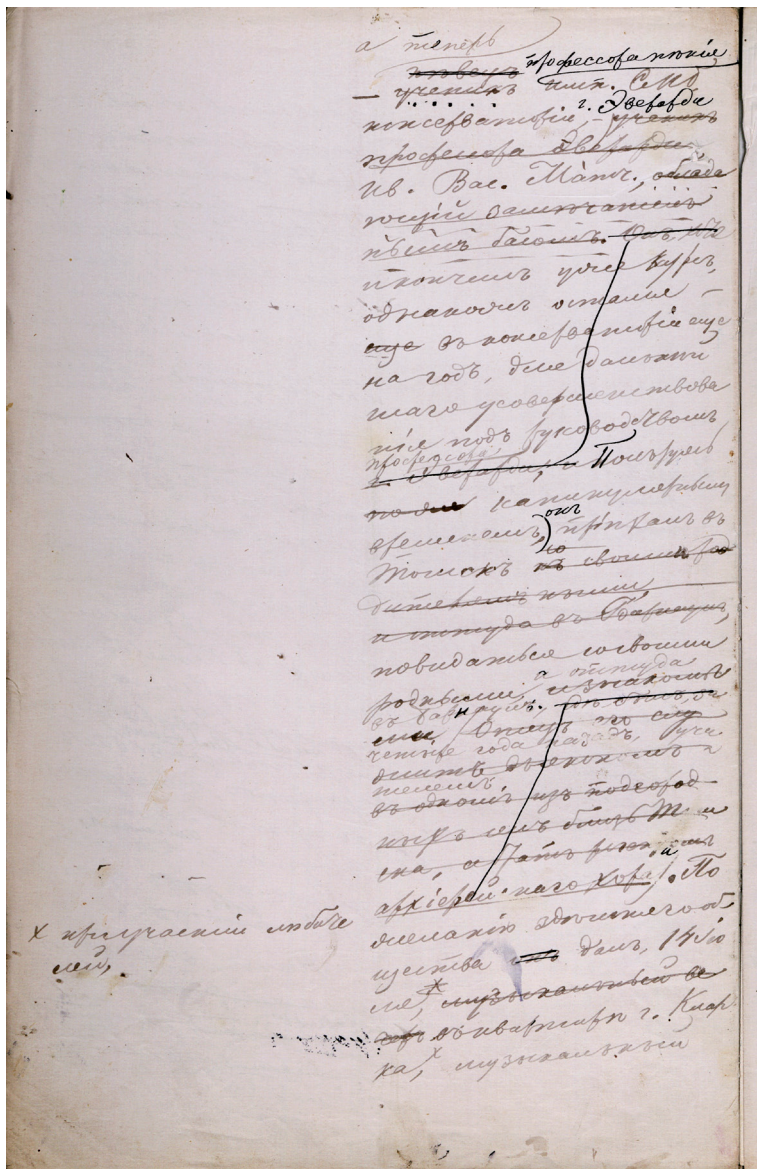 а теперь
пѣвецъ профессора пѣнія
— ученикъ имп. СПб
г. Эверарди
консерваторіи, – ученикъ
профессора Эверарди
Ив. Вас. Матч., облада
ющій замѣчатель
нымъ басомъ. Онъ
окончилъ уже курсъ,
однакожъ остался –
еще въ консерваторіи еще
на годъ, для дальнѣй
шаго усовершенствова
нія подъ руководствомъ
профессора
г. Эверарди, и Пользуясь
каникулярнымъ
онъ
временемъ, пріѣхалъ въ
Томскъ къ своимъ ро
дителямъ
и оттуда въ Барнаулъ,
повидаться со своими
а оттуда
родными, и знакомы
въ Барнаулъ.
ми. Отецъ его слу
четыре года назадъ, учи
житъ дьякономъ
телемъ
въ одномъ изъ подгород
ныхъ селъ близь Том
ска, а
архіерейскаго хора. По
желанію здѣшняго об
щества онъ далъ, 14 Ію
ля, х музыкальный ве
черъ въ квартирѣ г. Клар
ка, х музыкальный
х при участіи любите
лей,